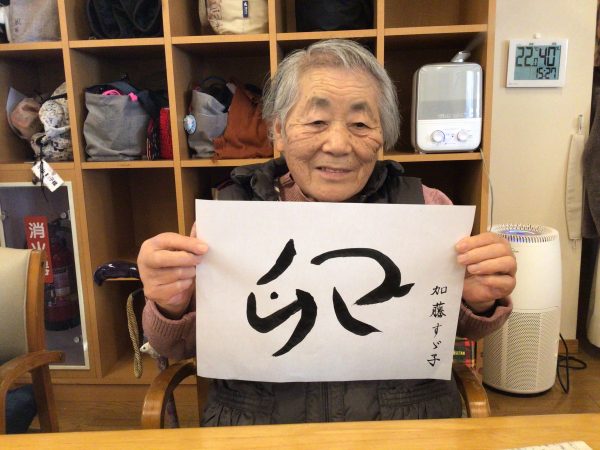 卯
加藤すゞ子
消火器
22.0 40
15:27